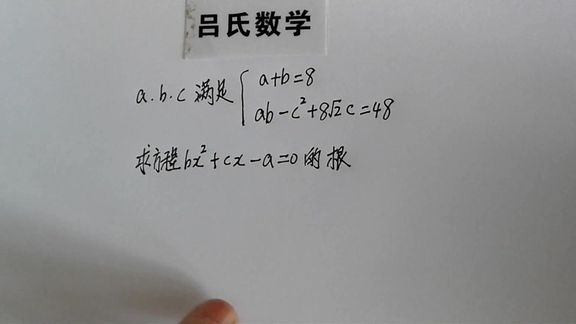 吕氏数学
a.b.c 满足 { a+b=8
ab-c²+8√2c=48
求方程bx²+cx-a=0的根